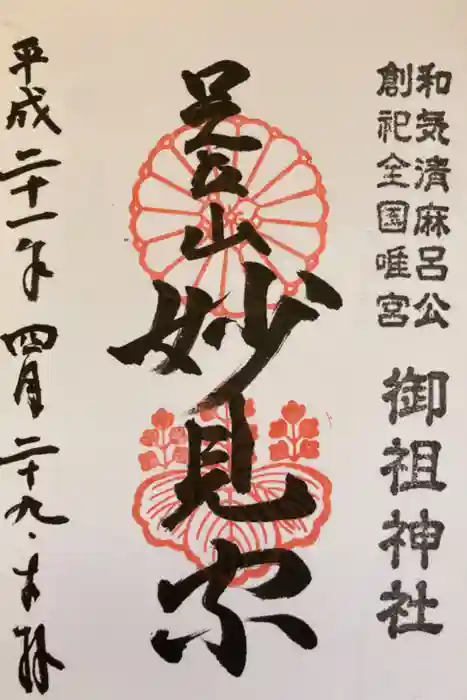 和気清麻呂公
創祀全国唯宮
御祖神社
足立山妙見宮
平成二十一年四月二十九日